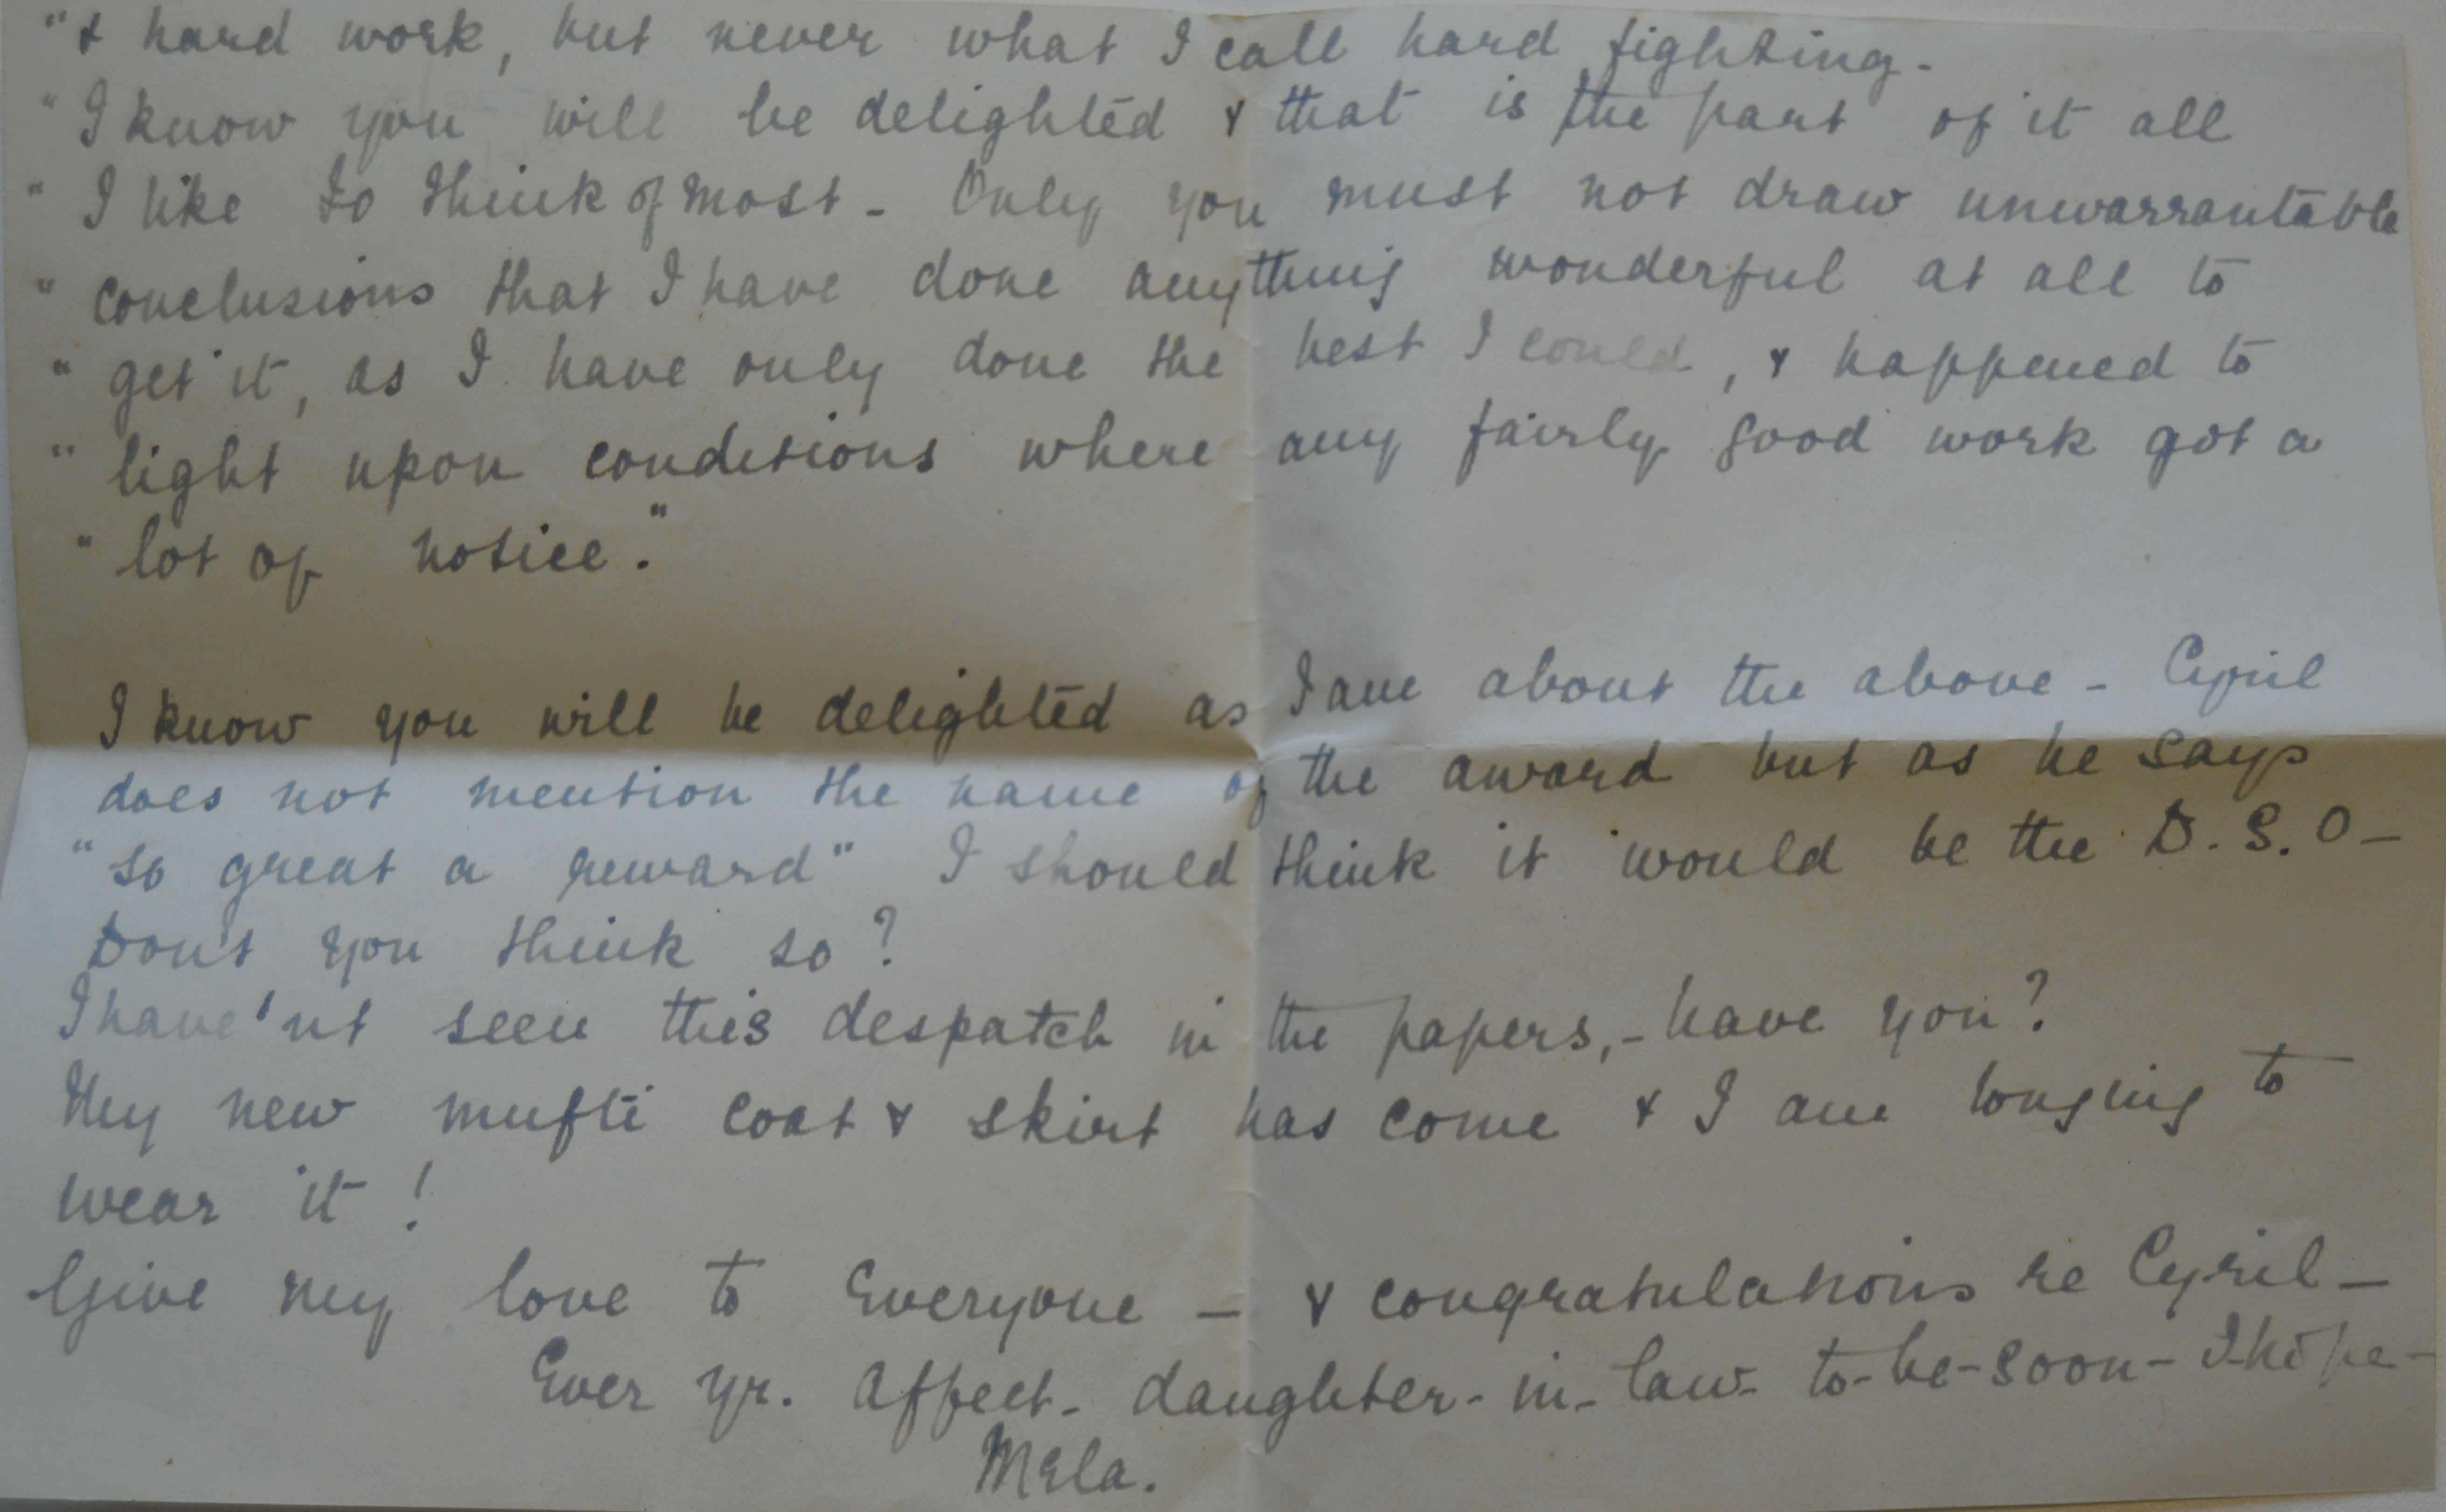 "& hard work, but never what I call hard fighting -
"I know you will be delighted & that is the part of it all
" I like to think of most - Only you must not draw unwarrantable
" conclusions that I have done anything wonderful at all to
" get it, as I have only done the best I could, & happened to
" light upon conditions where any fairly good work got a
" lot of notice."
I know you will be delighted as I am about the above - Cyril
does not mention the name of the award but as he says
"so great a reward" I should think it would be the D.S.O -
Don't you think so?
I have'nt seen this despatch in the papers, - have you?
My new mufti coat & skirt has come & I am longing to
wear it!
Give my love to Everyone - & congratulations re Cyril -
Ever yr. affect - daughter - in - law - to - be - soon - I - hope -
Mela.